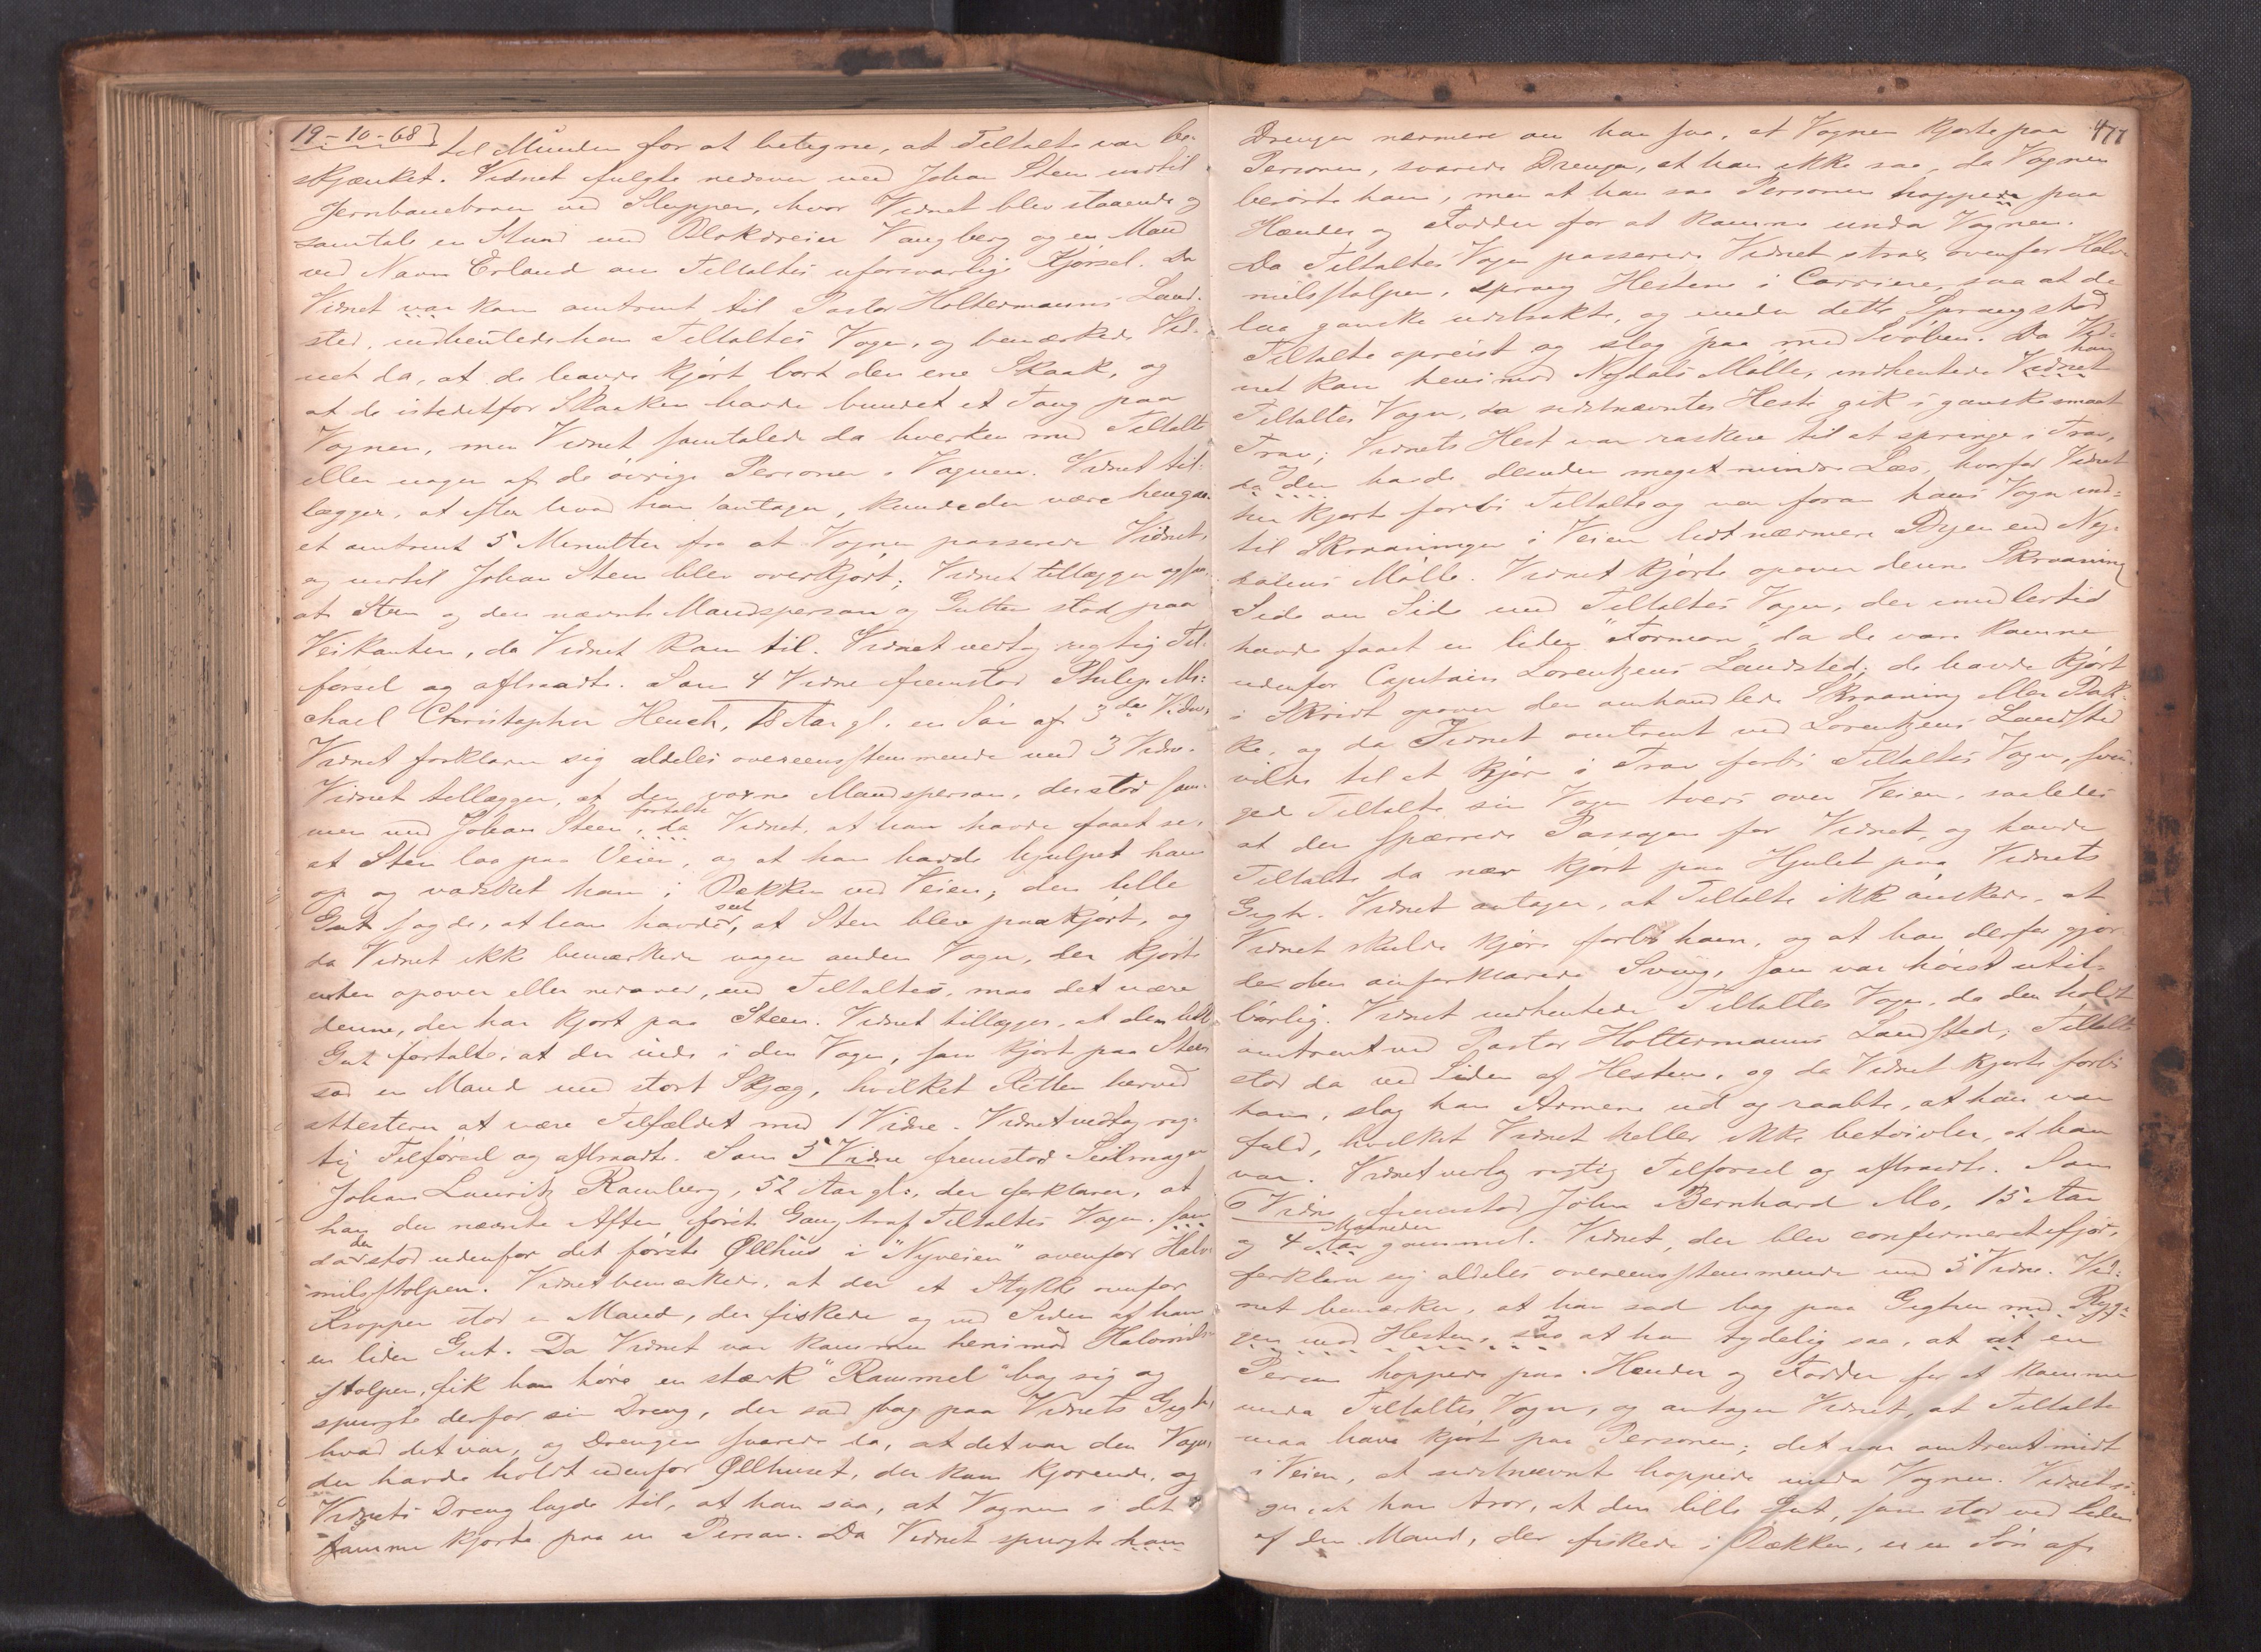 19-10-68} til Munden for at betegne, at Tiltalte var be-
skjænket. Vidnet fulgte nedover med Johan Steen indtil
Jernbanebroen ved Sluppen, hvor Vidnet blev staaende og
samtale en Stund med Blokdreier Vangberg og en Mand
ved Navn Erland om Tiltaltes uforsvarlige Kjørsel. Da
Vidnet var kom omtrent til Pastor Holtermanns Land-
sted, indhentede han Tiltaltes Vogn, og bemærkede Vid-
net da, at de havde kjørt bort den ene Skaak, og
at de istedetfor Skaaken havde bundet et Taug paa
Vognen, men Vidnet samtalede da hverken med Tiltalte
eller nogen af de øvrige Personer i Vognen. Vidnet til-
lægger, at efter hvad han antager, kunde der være hengaa-
et omtrent 5 Minutter fra at Vognen passerede Vidnet,
og indtil Johan Steen blev overkjørt; Vidnet tillægger ogsaa,
at Steen og den nævnte Mandsperson og Gutten stod paa
Veikanten, da Vidnet kom til. Vidnet vedtog rigtig Til-
førsel og aftraadte. Som 4 Vidne fremstod Philip Mi-
chael Christopher Heuch, 18 Aar gl. en Søn af 3die Vidne.
Vidnet forklarer sig aldeles overeensstemmende med 3 Vidne.
Vidnet tillægger, at den voxne Mandsperson, der stod sam-
men med Johan Steen, fortalte da Vidnet, at han havde faaet se,
at Steen laa paa Veien, og at han havde hjulpet ham
op og vadsket ham i Bækken ved Veien; den lille
Gut sagde, at han havde seet, at Steen blev paakjørt, og
da Vidnet ikke bemærkede nogen anden Vogn, der kjørte
enten opover eller nedover, end Tiltaltes, maa det være
denne, der har kjørt paa Steen. Vidnet tillægger, at den lille
Gut fortalte, at der inde i den Vogn, som kjørte paa Steen
sad en Mand med stort Skjæg, hvilket Retten herved
attesterer at være Tilfældet med 1 Vidne. Vidnet vedtog rig-
tig Tilførsel og aftraadte. Som 5 Vidne fremstod Seilmager
Johan Lauritz Ramberg, 52 Aar gl., der forklarer, at
han den nævnte Aften første Gang traf Tiltaltes Vogn, som
da den stod udenfor det første Ølhus i "Nyveien" ovenfor Halv-
milsstolpen. Vidnet bemærkede, at der et Stykke ovenfor
Kroppen stod en Mand, der fiskede og ved Siden af ham
en liden Gut. Da Vidnet var kommen henimod Halvmils-
stolpen, fik han høre en stærk "Rammel" bag sig og
spurgte derfor sin Dreng, der sad bag paa Vidnets Gigh,
hvad det var, og Drengen svarede da, at det var den Vogn,
der havde holdt udenfor Ølhuset, der kom kjørende, og
Vidnets Dreng lagde til, at han saa, at Vognen i det
samme kjørte paa en Person. Da Vidnet spurgte ham
477
Drengen nærmere om han saa, at Vognen kjørte paa
Personen, svarede Drengen, at han ikke saa, da Vognen
berørte ham, men at han saa Personen hoppede paa
Hænder og Fødder for at komme unda Vognen.
Da Tiltaltes Vogn passerede Vidnet strax ovenfor Halv-
milsstolpen, sprang Hestene i Carriere, saa at de
laa ganske udstrakte, og under dette Sprang stod
Tiltalte opreist og slog paa med Svøben. Da Vid-
net kom henimod Nysdals Mølle, indhentede Vidnet han
Tiltaltes Vogn, da sidstnævntes Heste gik i ganske smaat
Trav; Vidnets Hest var raskere til at springe i Trav,
da den havde desuden meget mindre Læs, hvorfor Vidnet
her kjørte forbi Tiltalte og var foran hans Vogn ind-
til Skraaningen i Veien lidt nærmere Byen end Nys-
dalens Mølle. Vidnet kjørte opover denne Skraaning
Side om Side med Tiltaltes Vogn, der imidlertid
havde faaet en liden "Forman", da de vare komne
udenfor Captain Lorentzens Landsted; de havde kjørt
i Skridt opover den omhandlede Skraaning eller Bak-
ke, og da Vidnet omtrent ved Lorentzens Landsted
vilde til at kjøre i Trav forbi Tiltaltes Vogn, svin-
gede Tiltalte sin Vogn tvers over Veien, saaledes
at den spærrede Passagen for Vidnet, og havde
Tiltalte da nær kjørt paa Hjulet paa Vidnets
Gigh. Vidnet antager, at Tiltalte ikke ønskede, at
Vidnet skulde kjøre forbi ham, og at han derfor gjor-
de den omforklarede Sving, som var høist util-
børlig. Vidnet indhentede Tiltaltes Vogn, da den holdt
omtrent ved Pastor Holtermanns Landsted; Tiltalte
stod da ved Siden af Hestene, og da Vidnet kjørte forbi
ham, slog han Armene ud og raabte, at han var
fuld, hvilket Vidnet heller ikke betvivler, at han
var. Vidnet vedtog rigtig Tilførsel og aftraadte. Som
6 Vidne fremstod John Bernhard Mo, 15 Aar
og 4 Aar Maaneder gammel. Vidnet, der blev confirmeret ifjor,
forklarer sig aldeles overeensstemmende med 5 Vidne. Vid-
net bemærker, at han sad bag paa Gighen med Ryg-
gen mod Hesten, saa og at han tydelig saa, at at en
Person hoppede paa Hænder og Fødder for at komme
unda Tiltaltes Vogn, og antager Vidnet, at Tiltalte
maa have kjørt paa Personen; det var omtrent midt
i Veien, at sidstnævnte hoppede unda Vognen. Vidnet si-
ger, at han tror, at den lille Gut, som stod ved Siden
af den Mand, der fiskede i Bækken, er en Søn af